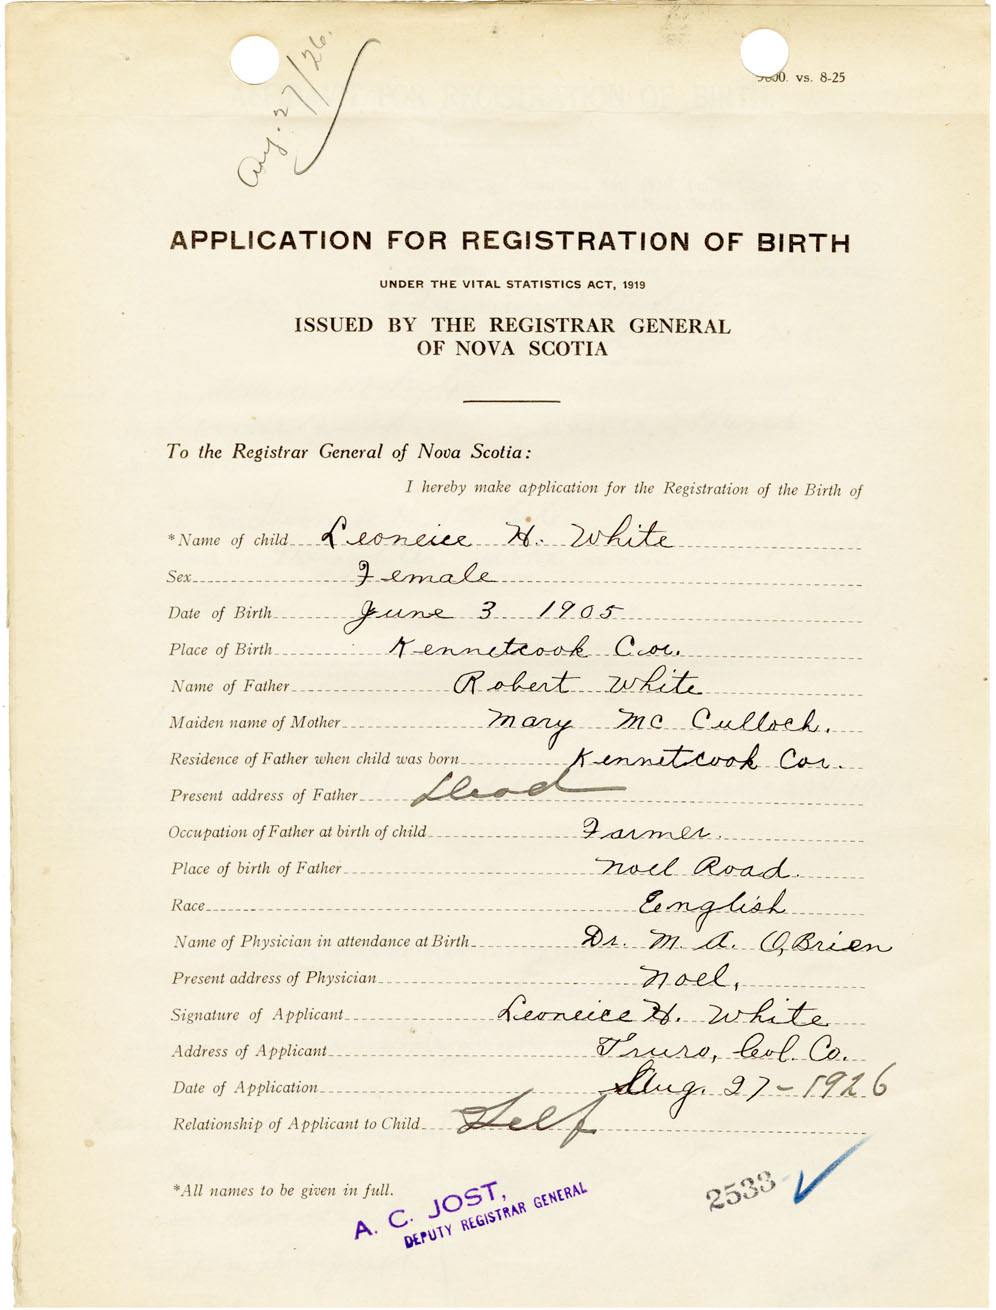 Aug. 27/26.
5000. vs. 8-25
APPLICATION FOR REGISTRATION OF BIRTH
UNDER THE VITAL STATISTICS ACT, 1919
ISSUED BY THE REGISTRAR GENERAL
OF NOVA SCOTIA
To the Registrar General of Nova Scotia:
I hereby make application for the Registration of the Birth of
*Name of child Leoneice H. White
Sex Female
Date of Birth June 3 1905
Place of Birth Kennetcook Cor.
Name of Father Robert White
Maiden name of Mother Mary McCulloch.
Residence of Father when child was born Kennetcook Cor.
Present address of Father Dead
Occupation of Father at birth of child Farmer.
Place of birth of Father Noel Road.
Race English
Name of Physician in attendance at Birth Dr. M. A. O'Brien
Present address of Physician Noel,
Signature of Applicant Leoneice H. White
Address of Applicant Truro, Col. Co.
Date of Application Aug. 27-1926
Relationship of Applicant to Child Self
*All names to be given in full.
A. C. JOST,
DEPUTY REGISTRAR GENERAL
2533